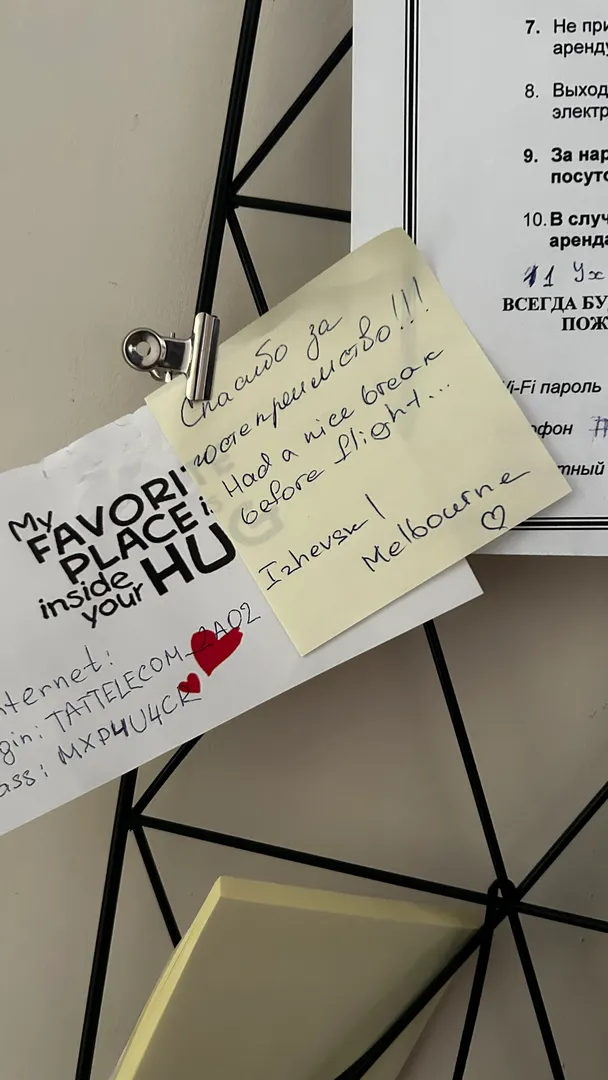 7. Не при
аренду
8. Выход
электр
9. За нар
посуто
10. В случ
аренда
11 Ух
ВСЕГДА БУ
ПОЖ
i-Fi пароль
фон #
тный
Спасибо за
гостеприимство!!!
Had a nice break
before flight...
Izhevsk |
Melbourne
My
FAVORI
PLACE i
inside HU
your
nternet:
gin: TATTELECOM_2A02
ass: MXP4U4CK